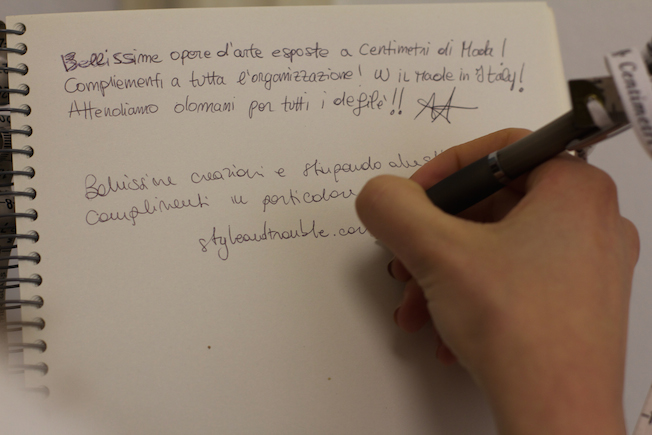 Bellissime opere d'arte esposte a Centimetri di Moda!
Complimenti a tutta l'organizzazione! W il Made in Italy!
Attendiamo domani per tutti i defilé!!
Bellissime creazioni e stupendo
complimenti in particolare
styleandtrouble.com
Centimetri